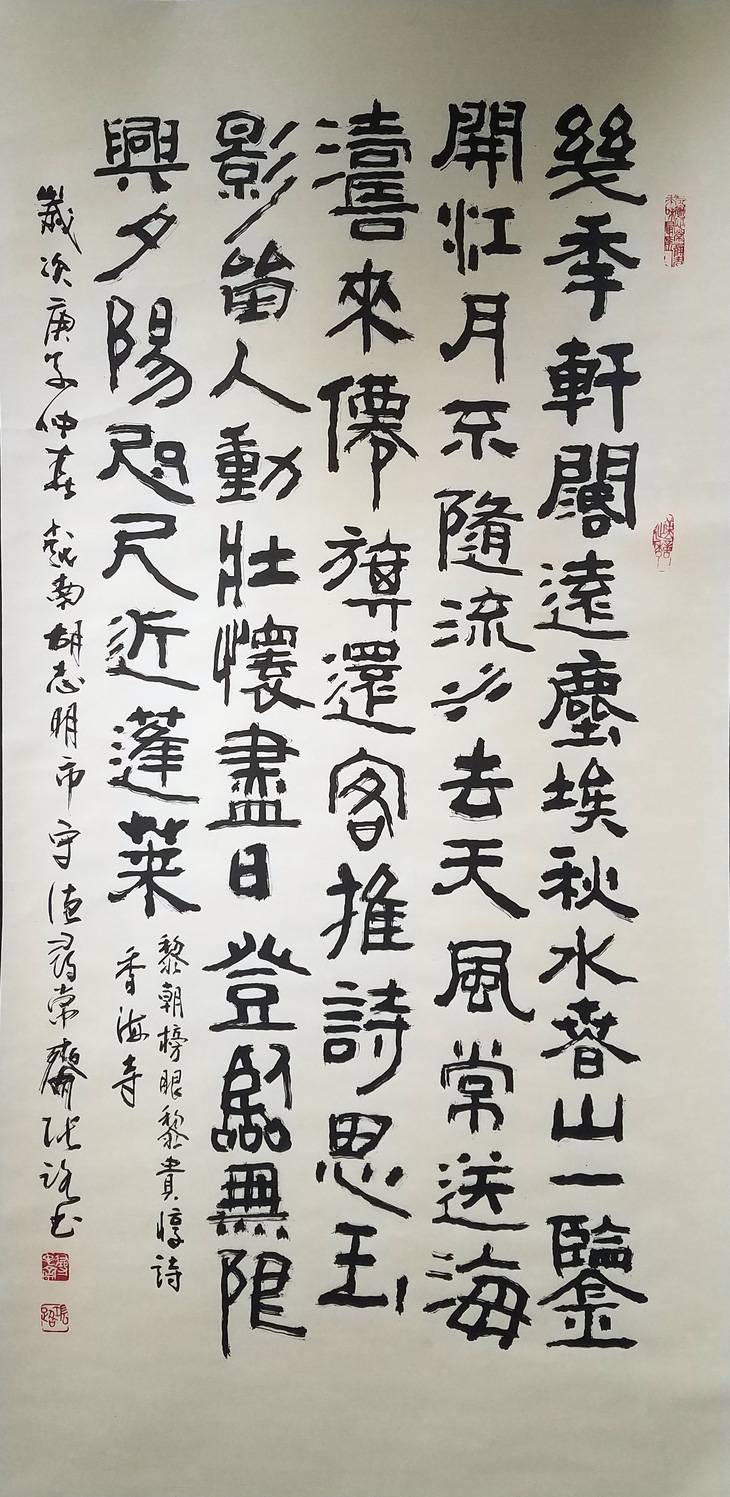 幾秊軒閣遠塵埃秋水春山一鑒
開江月不隨流水去天風常送海
濤來僊旗還客推詩思玉
影留人動壯懷盡日登臨無限
興夕陽咫尺近蓬萊
黎朝榜眼黎貴惇詩
香海寺
歲次庚子仲春越南胡志明市守德尋常齋張路書